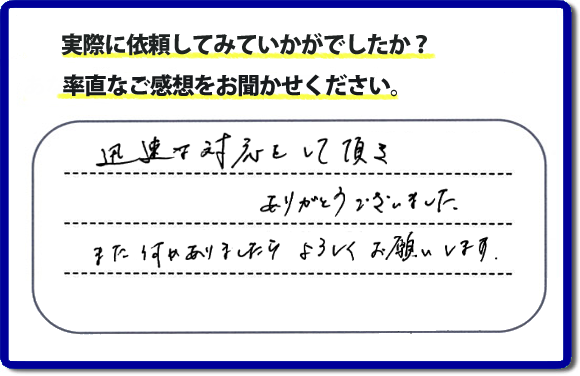 実際に依頼してみていかがでしたか？
率直なご感想をお聞かせください。
迅速な対応をして頂き
ありがとうございました。
また何かありましたら よろしくお願いします.